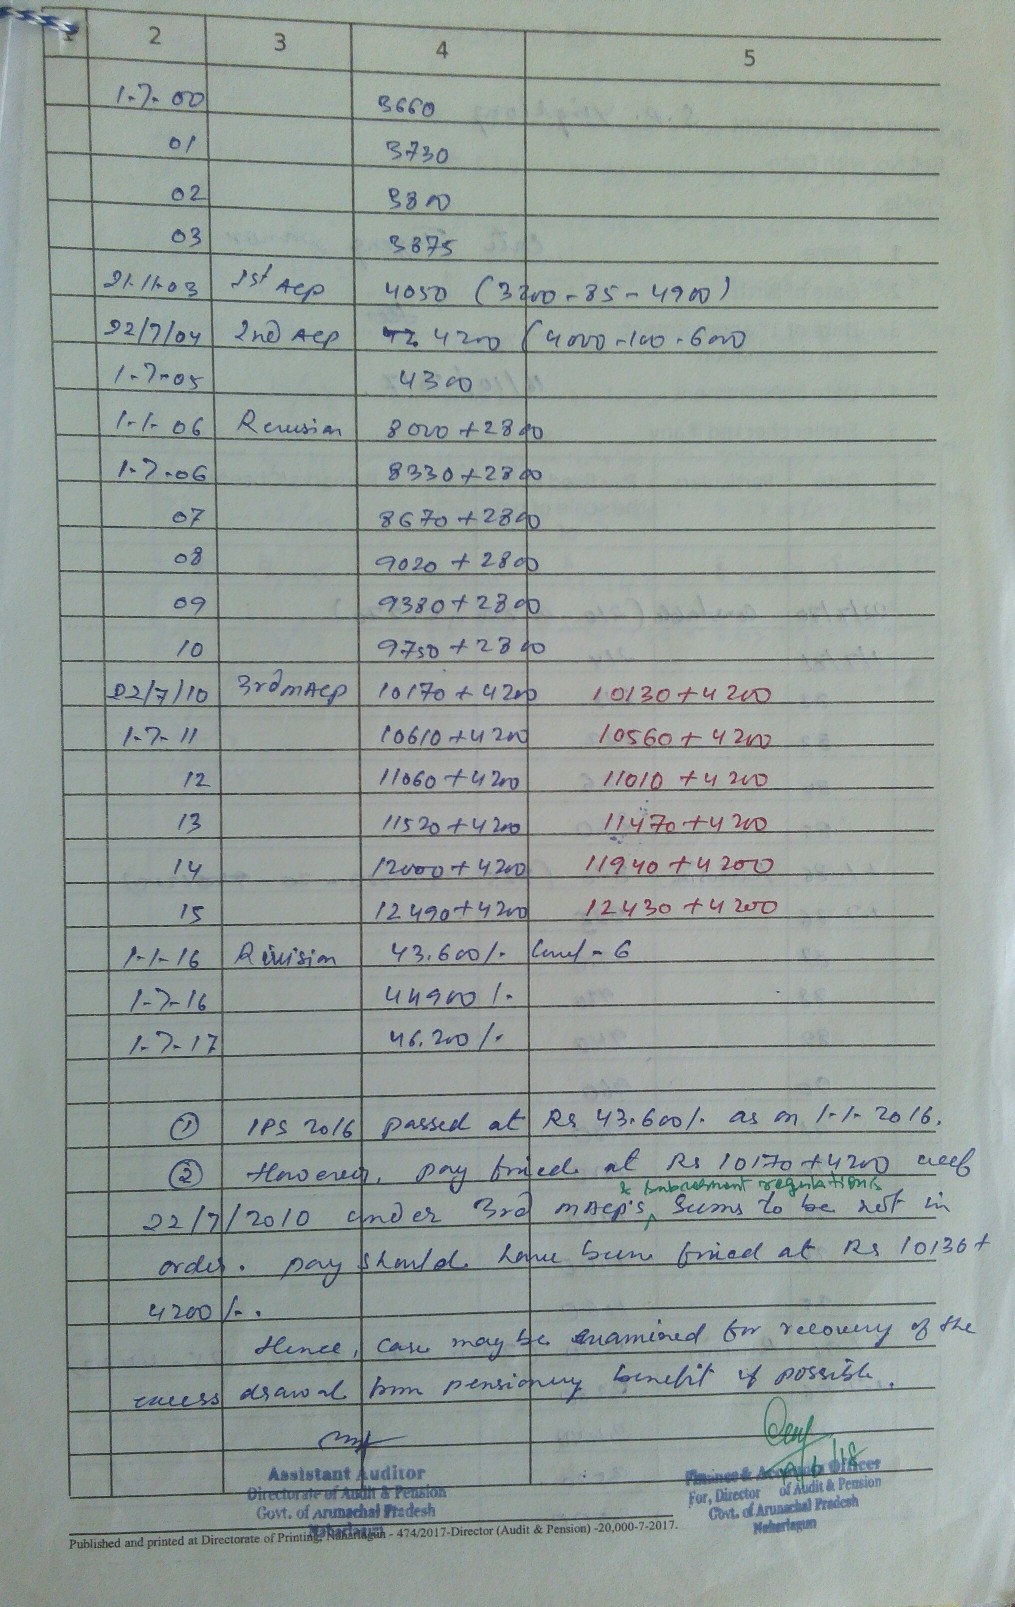 1 2 3 4 5
1-7-00 3660
01 3730
02 3800
03 3875
21.11.03 1st Acp 4050 (3200-85-4900)
22/7/04 2nd Acp 4200 (4000-100-6000
1-7-05 4300
1-1-06 Revision 8020+2800
1-7-06 8330+2800
07 8670+2800
08 9020+2800
09 9380+2800
10 9750+2800
22/7/10 3rd mAcp 10170+4200 10130+4200
1-7-11 10610+4200 10560+4200
12 11060+4200 11010+4200
13 11520+4200 11470+4200
14 12000+4200 11940+4200
15 12490+4200 12430+4200
1-1-16 Revision 43.600/- Level-6
1-7-16 44900/-
1-7-17 46.200/-
① IPS 2016 passed at Rs 43.600/- as on 1-1-2016.
② However, pay fixed at Rs 10170+4200 weef
& subsequent regulations
22/7/2010 under 3rd mAcp's ^ seems to be not in
order. pay should have been fixed at Rs 10130+
4200/-.
Hence, case may be examined for recovery of the
excess drawal from pensionary benefit if possible.
Assistant Auditor
Directorate of Audit & Pension
Govt. of Arunachal Pradesh
Naharlagun
Finance & Accounts Officer
For, Director of Audit & Pension
Govt. of Arunachal Pradesh
Naharlagun
Published and printed at Directorate of Printing, Naharlagun - 474/2017-Director (Audit & Pension) -20,000-7-2017.